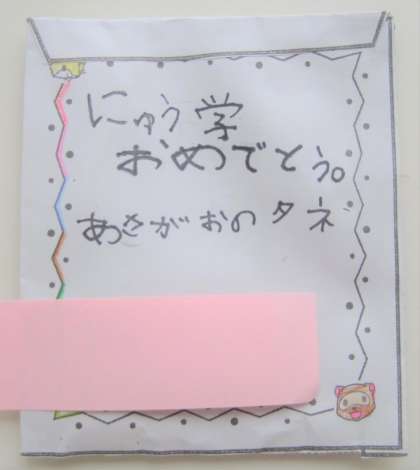 にゅう学
おめでとう。
あさがおのタネ